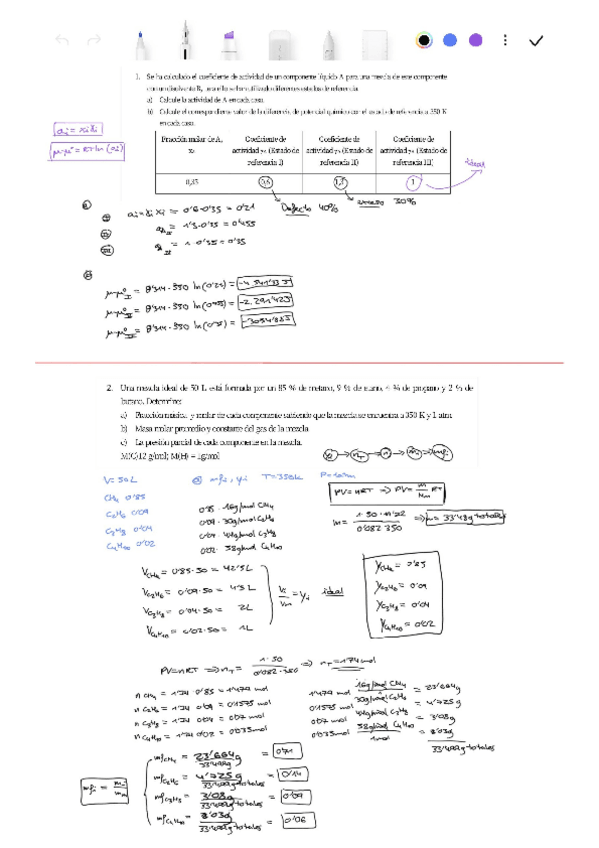 1. Se ha calculado el coeficiente de actividad de un componente líquido A para una mezcla de este componente
con un disolvente B, para ello se han utilizado diferentes estados de referencia.
a) Calcule la actividad de A en cada caso.
b) Calcule el correspondiente valor de la diferencia de potencial químico con el estado de referencia a 350 K
en cada caso.
ai = xi γi
μ-μ° = RT ln(ai)
Fracción molar de A, x
Coeficiente de actividad γA (Estado de referencia I)
Coeficiente de actividad γA (Estado de referencia II)
Coeficiente de actividad γA (Estado de referencia III)
ideal
0,35 0,6 1,3 1
Defecto 40% exceso 30%
a) I ai = γi xi = 0'6·0'35 = 0'21
II aII = 1'3·0'35 = 0'455
III aIII = 1·0'35 = 0'35
b)
μ-μ°I = 8'314·350 ln(0'21) = -4.541'333
μ-μ°II = 8'314·350 ln(0'455) = -2.291'425
μ-μ°III = 8'314·350 ln(0'35) = -3054'883
2. Una mezcla ideal de 50 L está formada por un 85 % de metano, 9 % de etano, 4 % de propano y 2 % de
butano. Determine:
a) Fracción másica y molar de cada componente sabiendo que la mezcla se encuentra a 350 K y 1 atm.
b) Masa molar promedio y constante del gas de la mezcla
c) La presión parcial de cada componente en la mezcla.
M(C)12 g/mol; M(H) = 1g/mol
V = 50L a) mfi, yi T = 350K P = 1atm
CH4 0'85
C2H6 0'09
C3H8 0'04
C4H10 0'02
0'85 · 16g/mol CH4
0'09 · 30g/mol C2H6
0'04 · 44g/mol C3H8
0'02 · 58g/mol C4H10
PV = nRT → PV = m/Mm RT
0'082·350 ⇒ m = 33'48g totales
VCH4 = 0'85·50 = 42'5L
VC2H6 = 0'09·50 = 4'5L
VC3H8 = 0'04·50 = 2L
VC4H10 = 0'02·50 = 1L
Vi/Vm = yi ideal
yCH4 = 0'85
yC2H6 = 0'09
yC3H8 = 0'04
yC4H10 = 0'02
PV = nRT ⇒ nT = 1·50/0'082·350 ⇒ nT = 1'74mol
n CH4 = 1'74·0'85 = 1'479 mol
n C2H6 = 1'74·0'09 = 0'1575 mol
n C3H8 = 1'74·0'04 = 0'07 mol
n C4H10 = 1'74·0'02 = 0'035 mol
1'479 mol 16g/mol CH4 = 23'664g
0'1575 mol 30g/mol C2H6 = 4'725g
0'07 mol 44g/mol C3H8 = 3'08g
0'035 mol 58g/mol C4H10 / 1mol = 2'03g
33'499g totales
mfi = mi/mm
mfCH4 = 23'664g/33'499g = 0'71
mfC2H6 = 4'725g/33'499g totales = 0'14
mfC3H8 = 3'08g/33'499g totales = 0'09
mfC4H10 = 2'030g/33'499g totales = 0'06